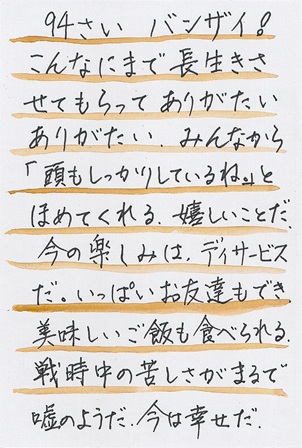 94さい バンザイ!
こんなにまで長生きさ
せてもらって ありがたい
ありがたい. みんなから
「頭もしっかりしているね。」と
ほめてくれる. 嬉しいことだ.
今の楽しみは, ディサービス
だ。いっぱいお友達もでき.
美味しいご飯も食べられる.
戦時中の苦しさがまるで
嘘のようだ. 今は幸せだ.